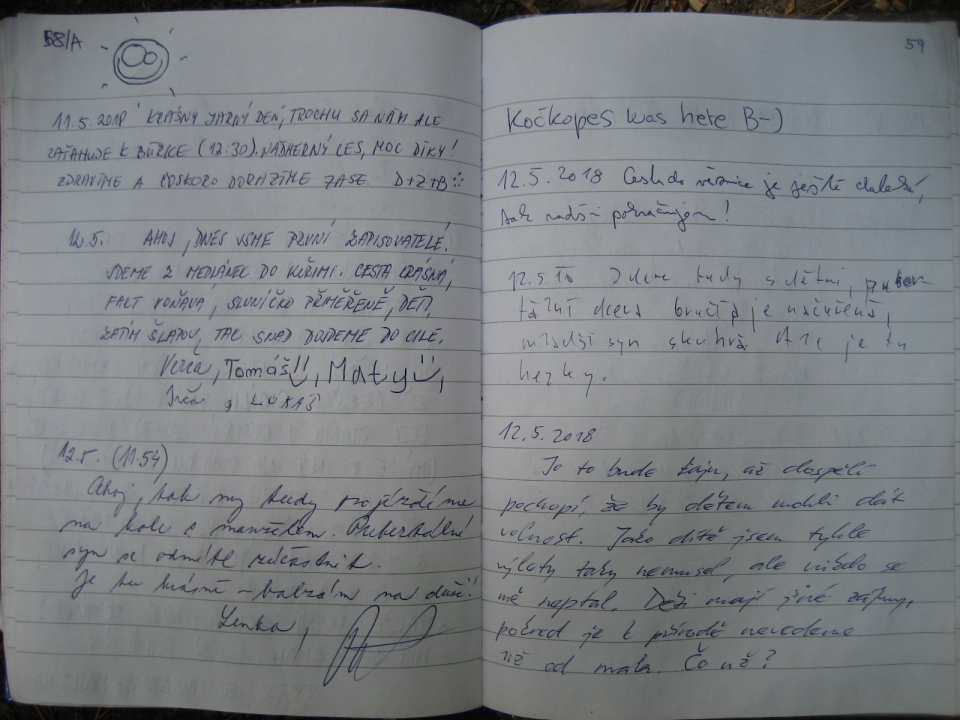 58/A
11.5.2018 KRÁSNÝ JARNÝ DEŇ, TROCHU SA NÁM ALE
ZAŤAHUJE K BÚRKE (12:30). NÁDHERNÝ LES, MOC DÍKY!
ZDRAVÍME A ČOSKORO DORAZÍME ZASE. D+Z+B
12.5. AHOJ, DNES JSME PRVNÍ ZAPISOVATELÉ.
JDEME Z MEDLÁNEK DO KUŘIMI. CESTA KRÁSNÁ,
FAKT VOŇAVÁ, SLUNÍČKO PŘIMĚŘENĚ, DĚTI
ZATÍM ŠLAPOU, TAK SNAD DOJDEME DO CÍLE.
Verča, Tomáš!!, Maty,
Irča a LUKÁŠ
12.5. (11:54)
Ahoj, tak my tudy projíždíme
na kole s manželem. Pubertální
syn se odmítl zúčastnit.
Je tu krásně – balzám na duši!
Lenka,
59
Kočkopes was here B-)
12.5.2018 Cesta do vesnice je ještě daleká,
tak radši pokračujem!
12.5. Jdeme tudy s dětmi, puber
tální dcera bručí a je načuřená,
mladší syn skuhrá. Ale je tu
hezky.
12.5.2018
Jo to bude tajm, až dospělí
pochopí, že by dětem mohli dát
volnost. Jako dítě jsem tyhle
výlety taky nemusel, ale nikdo se
mě neptal. Děti mají jiné zájmy,
pokud je k přírodě nevedeme
už od mala. Co už?